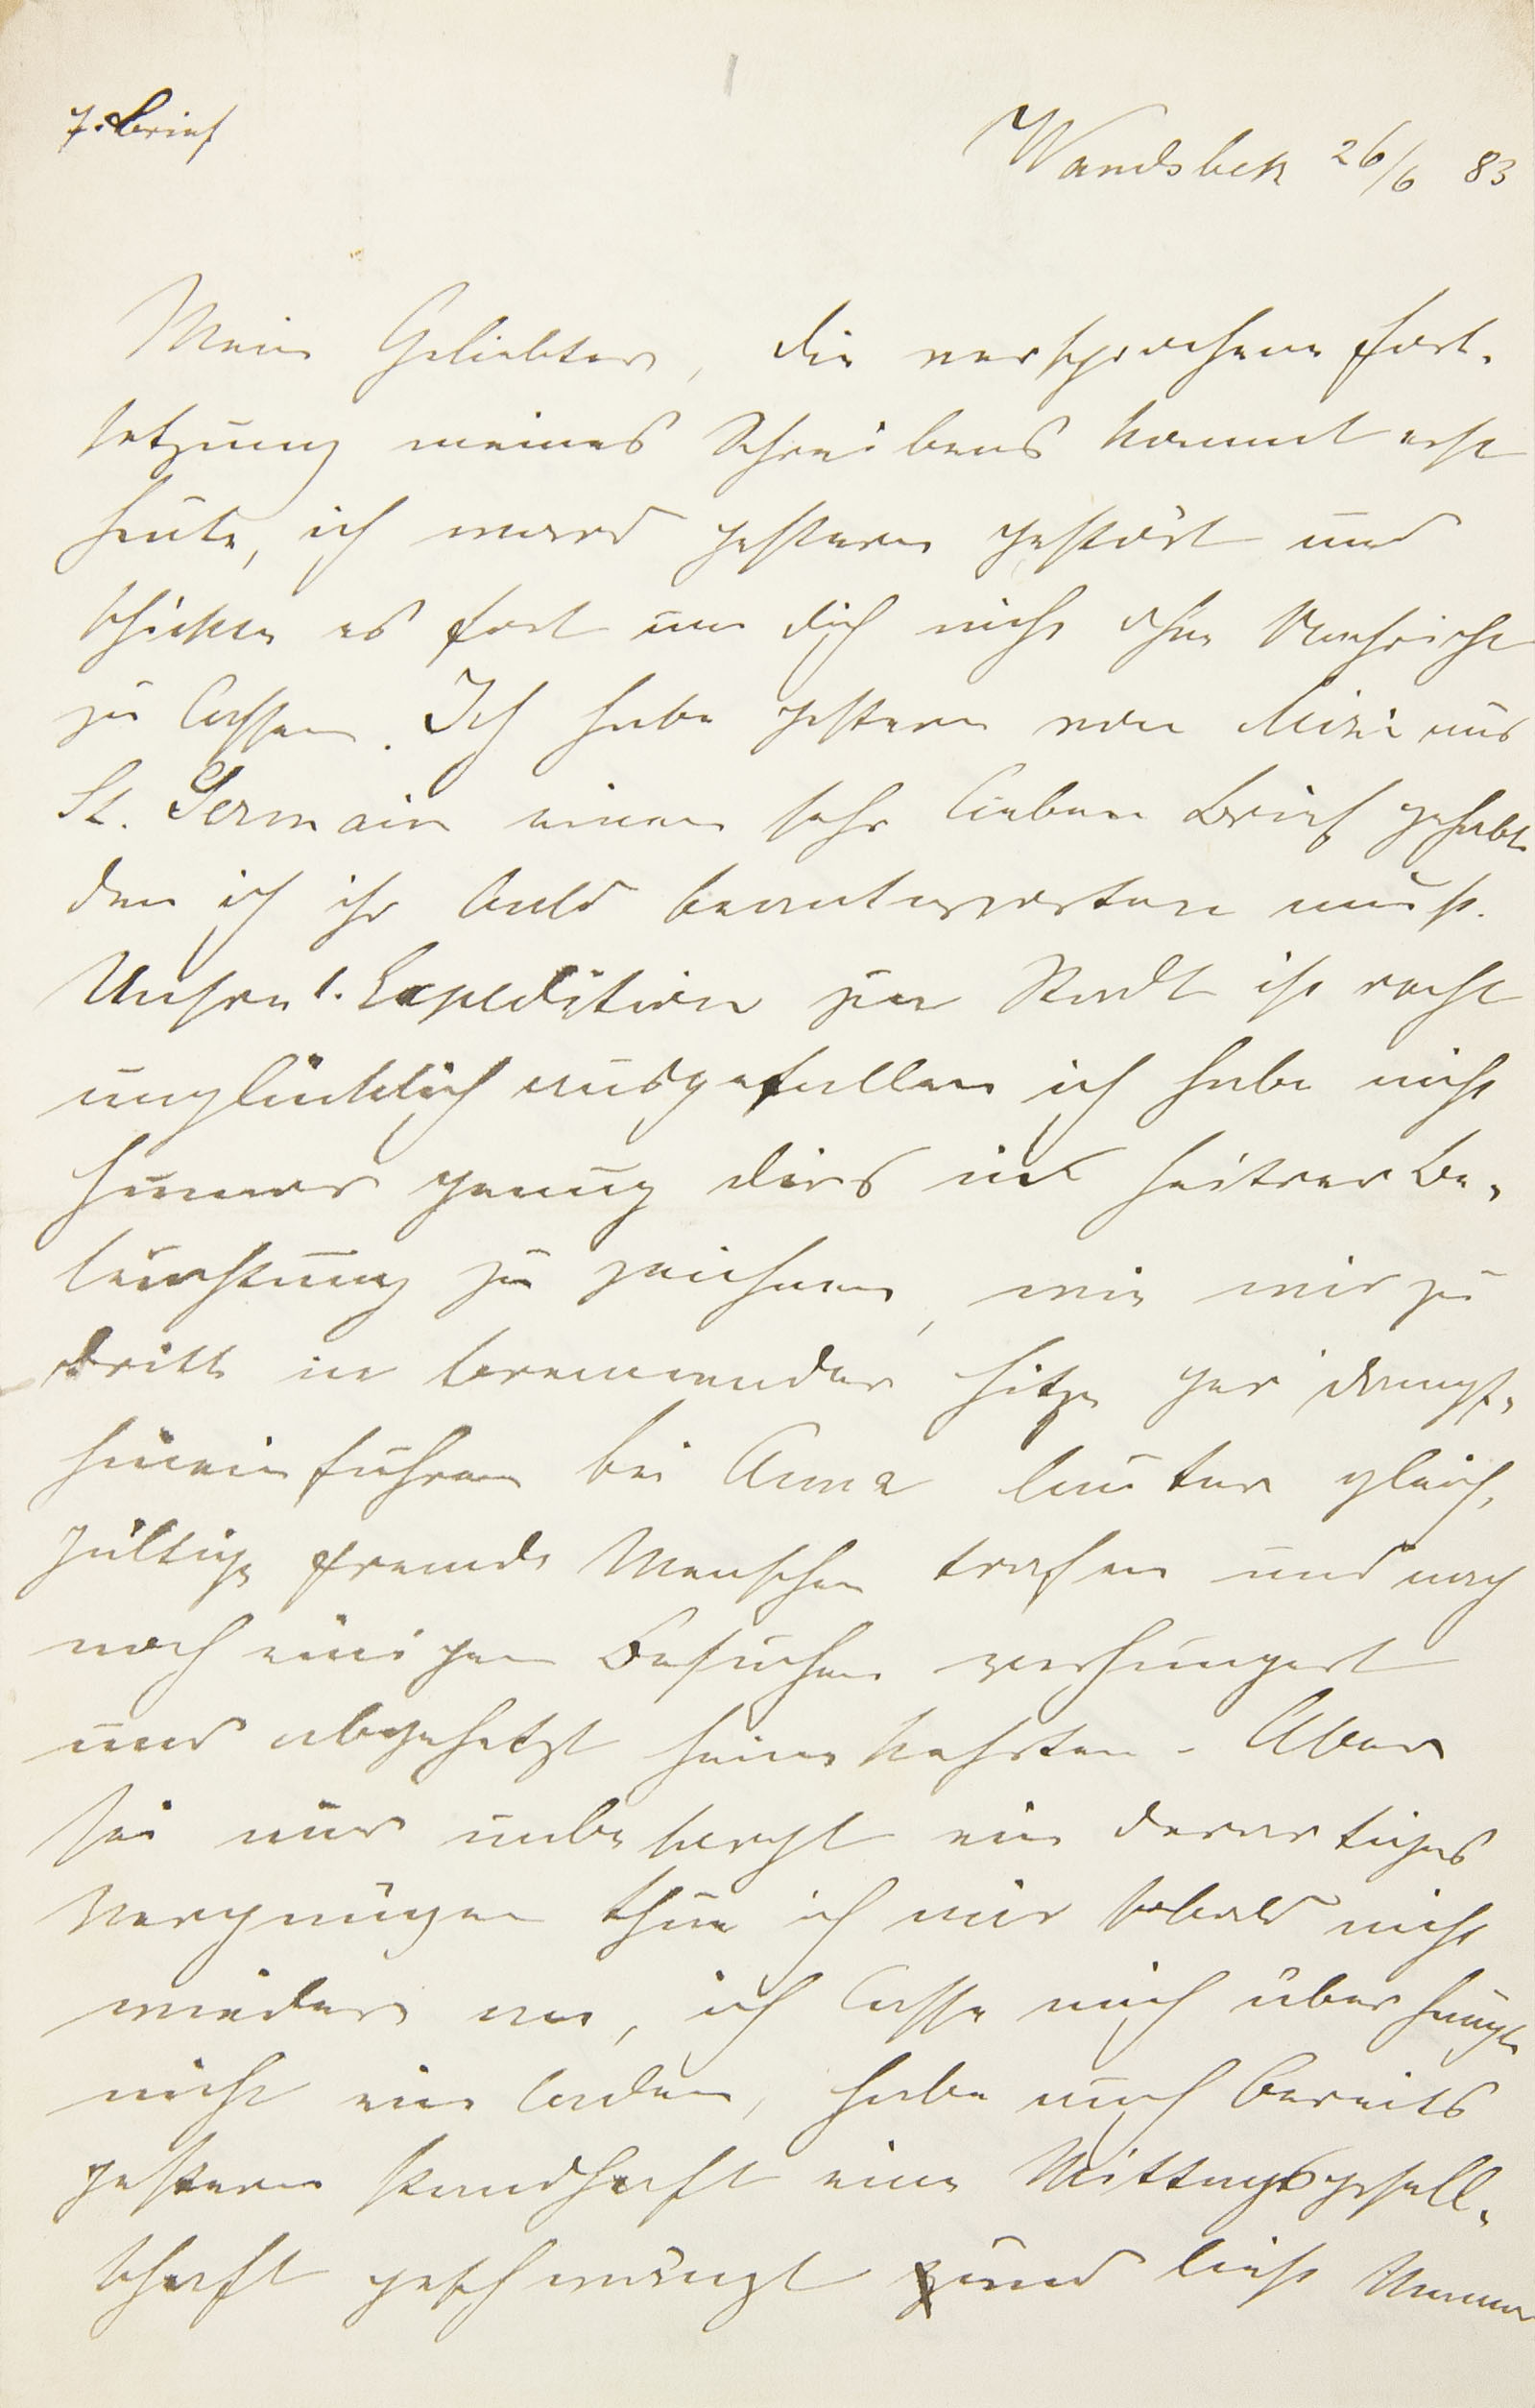 7. Brief
Wandsbek 26/6 83
Mein Geliebter, die versprochene Fort-
setzung meines Schreibens kommt erst
heute, ich ward gestern gestört und
schickte es fort um dich nicht ohne Nachricht
zu lassen. Ich habe gestern von Mizi aus
St. Germain einen sehr lieben Brief gehabt
den ich ihr bald beantworten muß.
Unsre 1. Expedition zur Stadt ist recht
unglücklich ausgefallen ich habe nicht
Humor genug dirs in heitrer Be-
leuchtung zu zeichnen, wie wir zu
dritt in brennender Hitze per Dampf-
hineinfuhren bei Anna lauter gleich-
gültige fremde Menschen trafen und nach
noch einigen Besuchen verhungert
und abgehetzt heimkehrten. Aber
sei nur unbesorgt ein derartiges
Vergnügen thue ich mir sobald nicht
wieder an, ich lasse mich überhaupt
nicht einladen, habe auch bereits
gestern standhaft eine Mittagsgesell-
schaft geschwänzt und ließ Mama